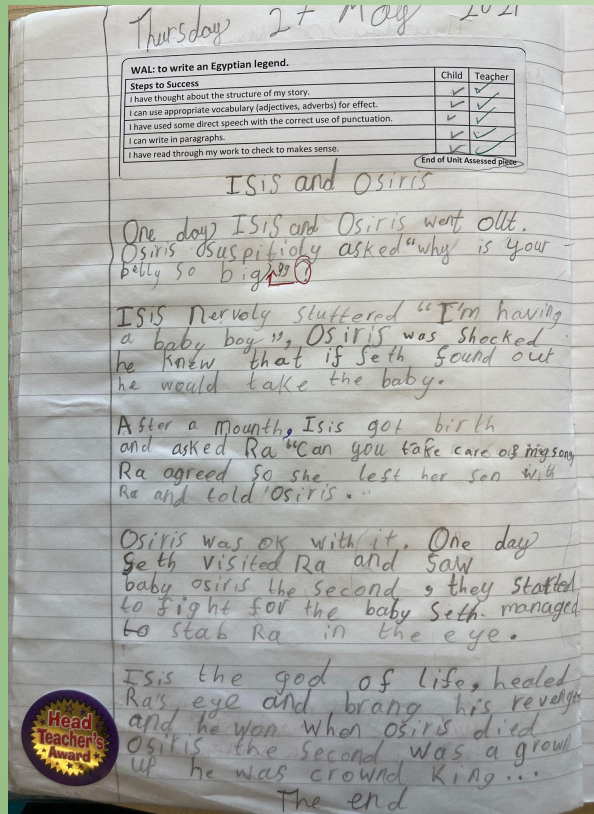 Thursday 27 May 2021
WAL: to write an Egyptian legend.
Steps to Success Child Teacher
I have thought about the structure of my story.
I can use appropriate vocabulary (adjectives, adverbs) for effect.
I have used some direct speech with the correct use of punctuation.
I can write in paragraphs.
I have read through my work to check to makes sense.
End of Unit Assessed piece
ISis and Osiris
One day ISiS and Osiris went out.
Osiris asked "why is your
belly so big"?
ISiS nervoly stuttered "I'm having
a baby boy", Osiris was shocked
he knew that if Seth found out
he would take the baby.
After a mounth, Isis got birth
and asked Ra "Can you take care of my son,
Ra agreed so she left her son with
Ra and told Osiris...
Osiris was ok with it. One day
Seth visited Ra and saw
baby osiris the second, they started
to fight for the baby Seth managed
to stab Ra in the eye.
Isis the god of life, healed
Ra's eye and brang his revenge
and he won when osiris died
Osiris the second was a grown
up he was crownd King...
The end
Head
Teacher's
Award